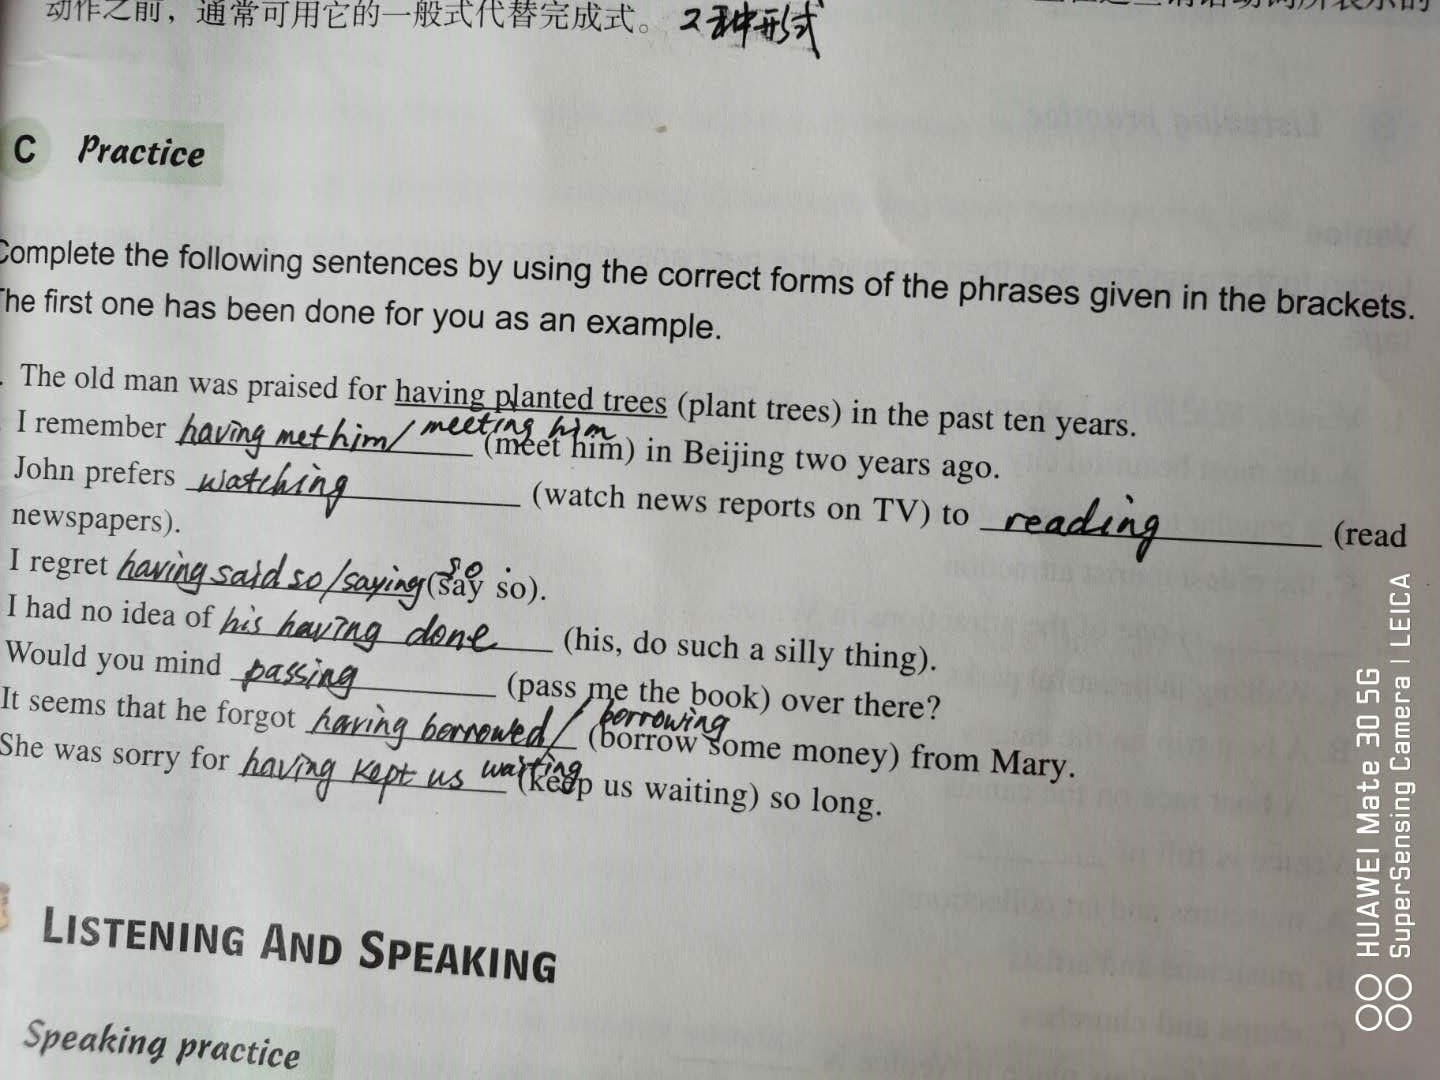 动作之前，通常可用它的一般式代替完成式。 2种形式
C Practice
Complete the following sentences by using the correct forms of the phrases given in the brackets.
The first one has been done for you as an example.
The old man was praised for having planted trees (plant trees) in the past ten years.
I remember having met him/ meeting him (meet him) in Beijing two years ago.
John prefers watching (watch news reports on TV) to reading (read
newspapers).
I regret having said so/saying so (say so).
I had no idea of his having done (his, do such a silly thing).
Would you mind passing (pass me the book) over there?
It seems that he forgot having borrowed/ borrowing (borrow some money) from Mary.
She was sorry for having kept us waiting (keep us waiting) so long.
LISTENING AND SPEAKING
Speaking practice
HUAWEI Mate 30 5G
SuperSensing Camera | LEICA